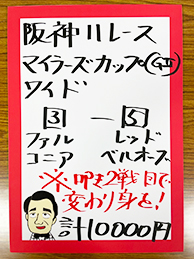 阪神11レース
マイラーズカップ(GII)
ワイド
3 — 5
ファル レッド
コニア ベルオーブ
※叩き2戦目で
変わり身を!
計10000円